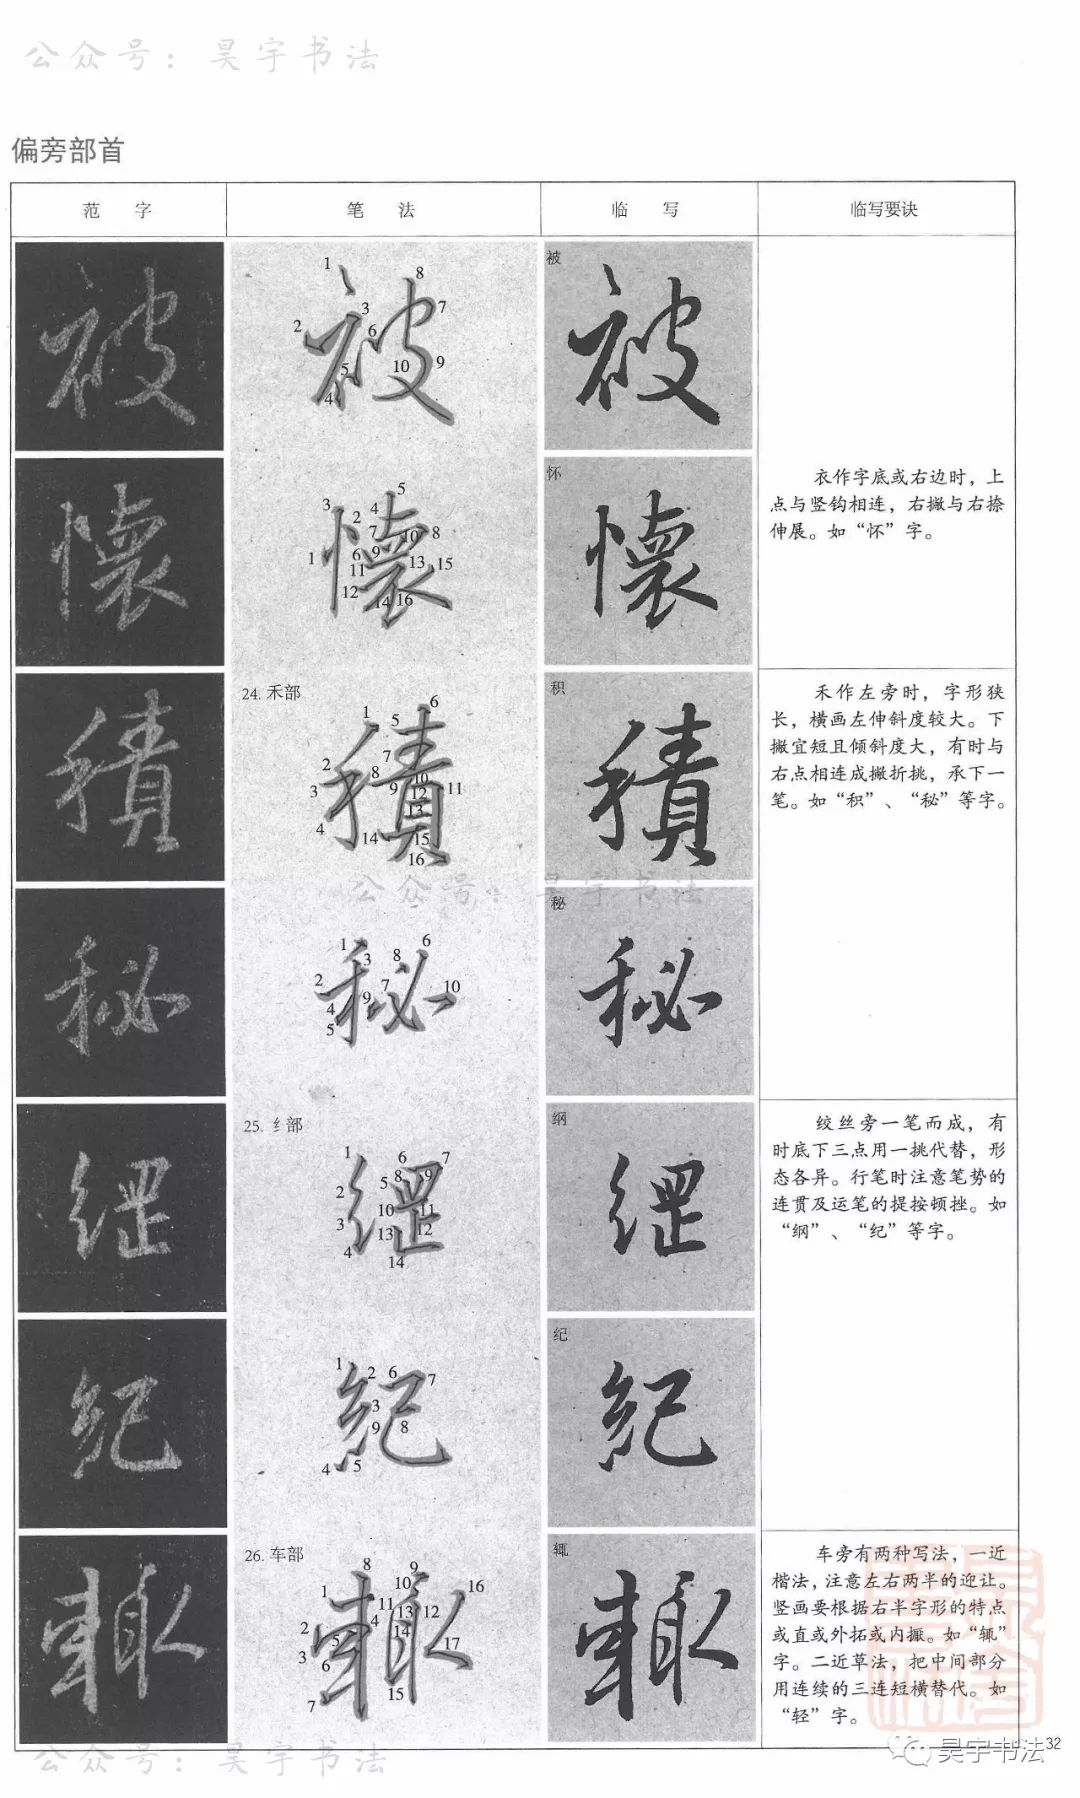 公众号：昊宇书法
偏旁部首
范 字
笔 法
临 写
临写要诀
被
1
2
3
4
5
6
7
8
9
10
怀
1
2
3
4
5
6
7
8
9
10
11
12
13
14
15
16
衣作字底或右边时，上
点与竖钩相连，右撇与右捺
伸展。如“怀”字。
24. 禾部
积
1
2
3
4
5
6
7
8
9
10
11
12
13
14
15
16
禾作左旁时，字形狭
长，横画左伸斜度较大。下
撇宜短且倾斜度大，有时与
右点相连成撇折挑，承下一
笔。如“积”、“秘”等字。
公众号：昊宇书法
秘
1
2
3
4
5
6
7
8
9
10
25. 纟部
纲
1
2
3
4
5
6
7
8
9
10
11
12
13
14
绞丝旁一笔而成，有
时底下三点用一挑代替，形
态各异。行笔时注意笔势的
连贯及运笔的提按顿挫。如
“纲”、“纪”等字。
纪
1
2
3
4
5
6
7
8
9
26. 车部
辄
1
2
3
4
5
6
7
8
9
10
11
12
13
14
15
16
17
车旁有两种写法，一近
楷法，注意左右两半的迎让。
竖画要根据右半字形的特点
或直或外拓或内擫。如“辄”
字。二近草法，把中间部分
用连续的三连短横替代。如
“轻”字。
32
公众号：昊宇书法
昊宇书法